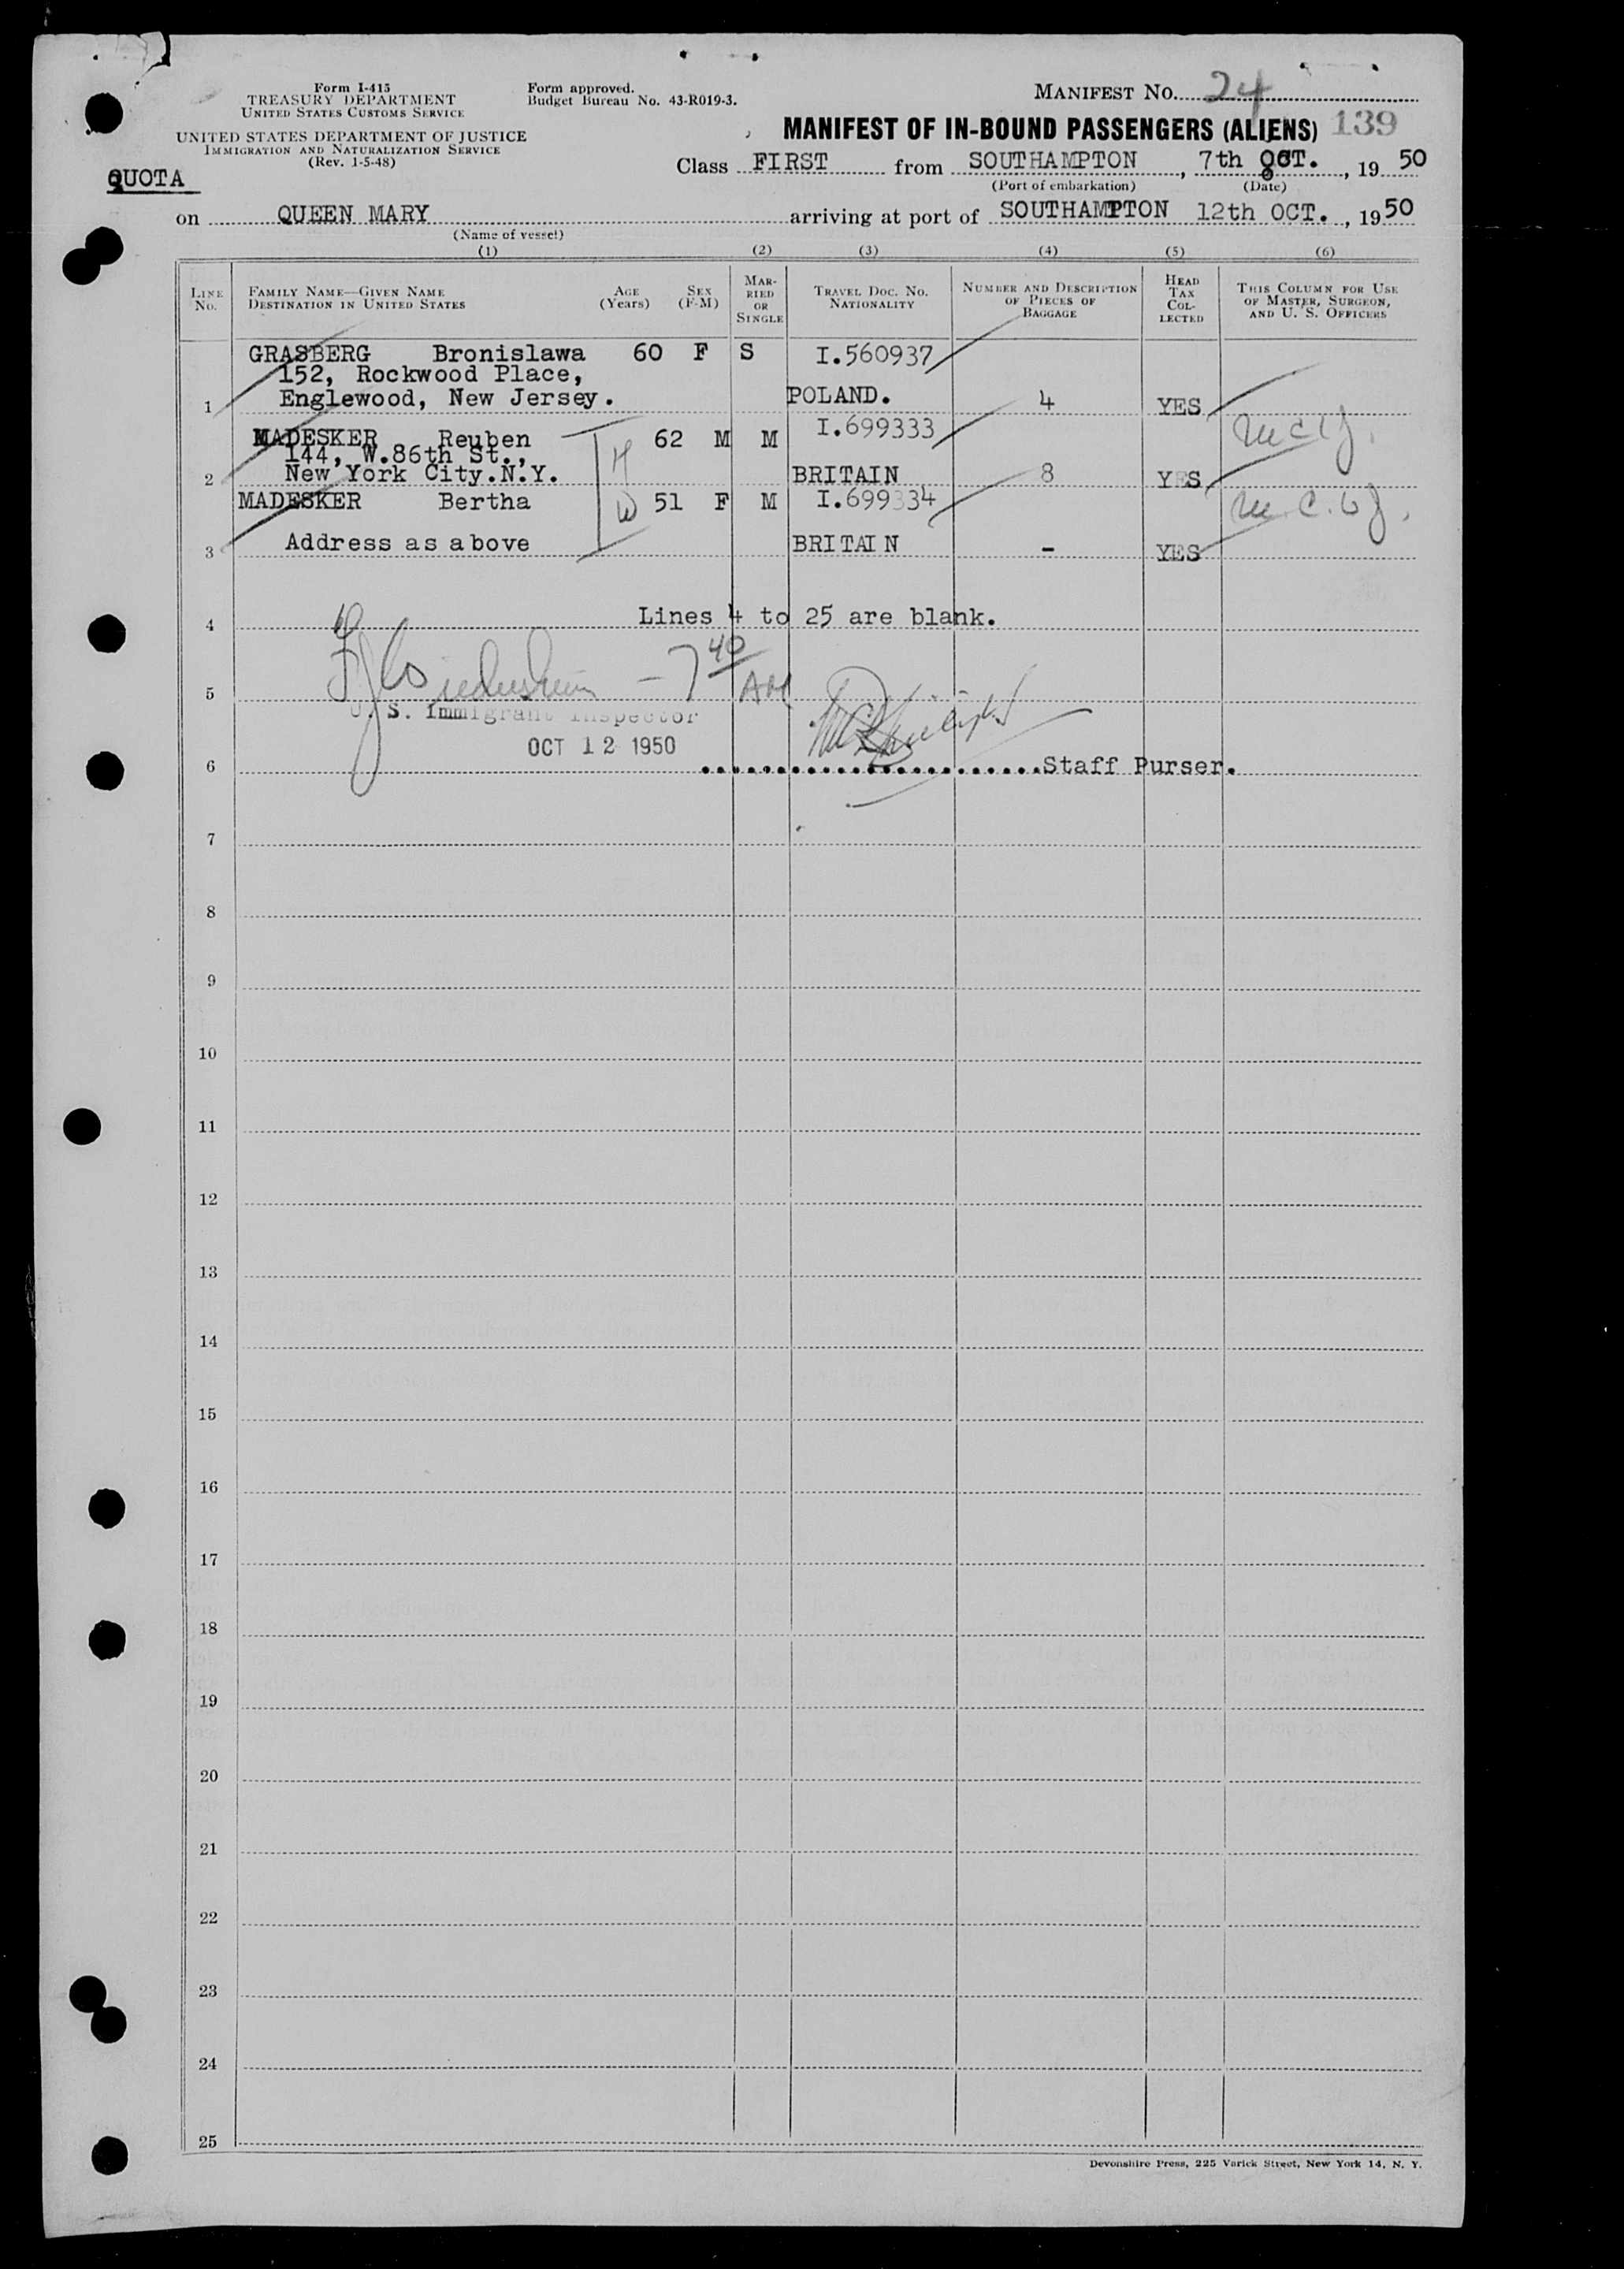 Form I-415
TREASURY DEPARTMENT
UNITED STATES CUSTOMS SERVICE
UNITED STATES DEPARTMENT OF JUSTICE
IMMIGRATION AND NATURALIZATION SERVICE
(Rev. 1-5-48)
Form approved.
Budget Bureau No. 43-R019-3.
MANIFEST NO. 24
MANIFEST OF IN-BOUND PASSENGERS (ALIENS) 139
QUOTA
Class FIRST from SOUTHAMPTON, 7th OCT., 19 50
(Port of embarkation) (Date)
on QUEEN MARY arriving at port of SOUTHAMPTON 12th OCT., 19 50
(Name of vessel)
(1) (2) (3) (4) (5) (6)
LINE NO.
FAMILY NAME—GIVEN NAME
DESTINATION IN UNITED STATES
AGE (Years)
SEX (F-M)
MARRIED OR SINGLE
TRAVEL DOC. NO. NATIONALITY
NUMBER AND DESCRIPTION OF PIECES OF BAGGAGE
HEAD TAX COLLECTED
THIS COLUMN FOR USE OF MASTER, SURGEON, AND U. S. OFFICERS
GRASBERG Bronislawa 60 F S I.560937
152, Rockwood Place,
1 Englewood, New Jersey. POLAND. 4 YES
MADESKER Reuben H 62 M M I.699333
144, W.86th St.,
2 New York City.N.Y. BRITAIN 8 YES
MADESKER Bertha W 51 F M I.699334
3 Address as above BRITAIN - YES
4 Lines 4 to 25 are blank.
5 - 7 40 AM
U. S. Immigrant Inspector
OCT 12 1950
6 Staff Purser.
7
8
9
10
11
12
13
14
15
16
17
18
19
20
21
22
23
24
25
Devonshire Press, 225 Varick Street, New York 14, N. Y.